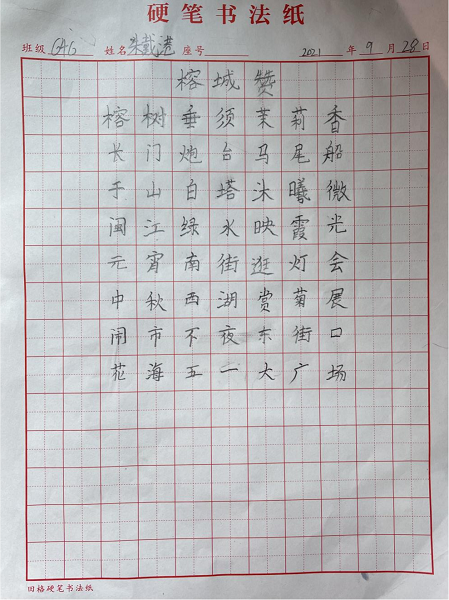 硬笔书法纸
班级 GA6 姓名 朱戴港 座号 2021 年 9 月 28 日
榕城赞
榕树垂须茉莉香
长门炮台马尾船
于山白塔沐曦微
闽江绿水映霞光
元宵南街逛灯会
中秋西湖赏菊展
闹市不夜东街口
花海五一大广场
田格硬笔书法纸